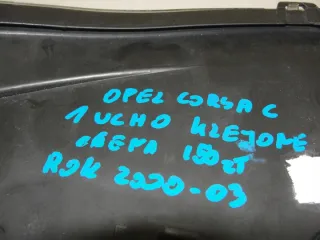 OPEL CORSA C
1 UCHO KLEJONE
CENA 150 ZŁ
ROK 2000-03